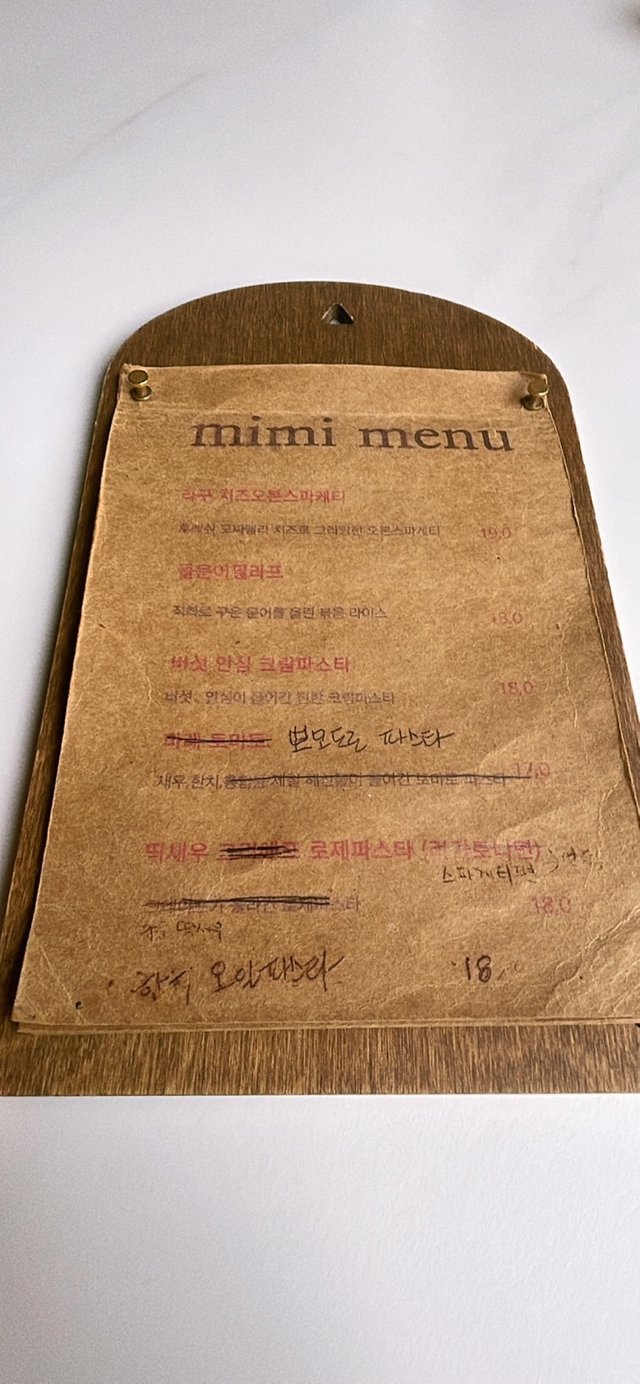 mimi menu
라구 치즈오븐스파게티
후레쉬 모짜렐라 치즈로 그라팅한 오븐스파게티 19,0
돌문어필라프
직화로 구운 문어를 올린 볶음 라이스 18,0
버섯 안심 크림파스타
버섯, 안심이 들어간 진한 크림파스타 18,0
마레 토마토 뽀모도로 파스타
새우,한치,홍합,그 제철 해산물이 들어간 토마토 파스타 17,0
딱새우 로제파스타 (리가토니면)
스파게티면
로제파스타 18,0
한치 오일파스타 18,0